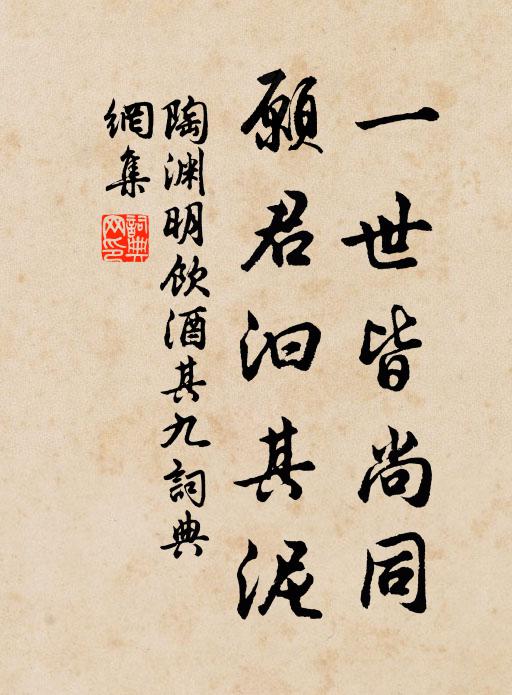 一世皆尚同
願君汩其泥
陶渊明飲酒其九詞典
網集
詞典
网印